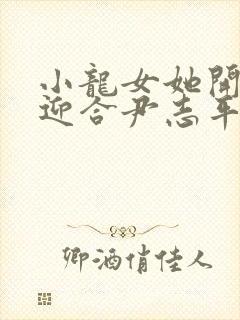 小龍女她開
迎合尹志平
卿酒俏佳人